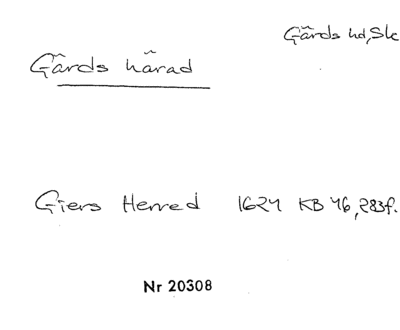 Gärds hd, Sk
Gärds härad
Giers Herred 1624 KB 46, 283f.
Nr 20308